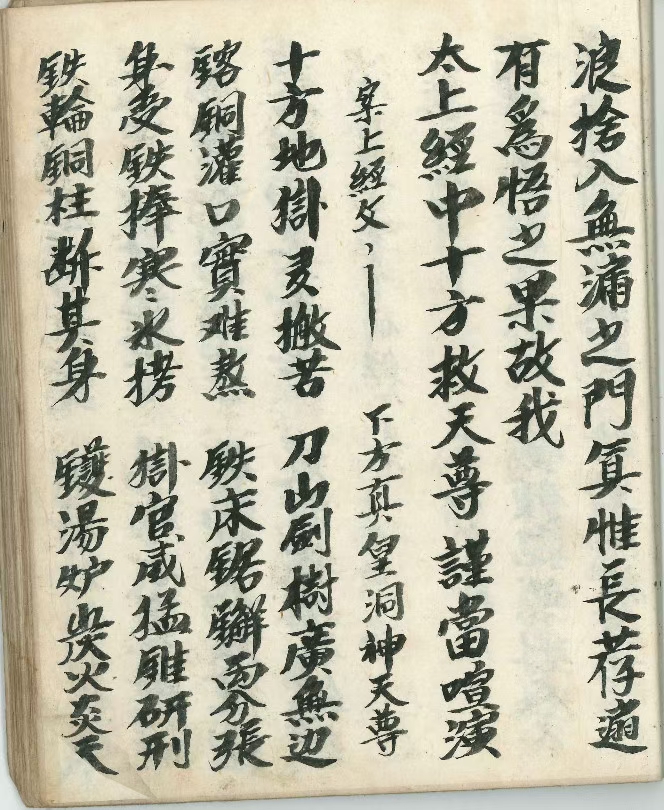 浪捨入無漏之門冥惟長荐逥
有爲悟之果故我
太上經中十方救天尊謹當喧演
案上經文 下方真皇洞神天尊
十方地獄受撒苦 刀山劍樹廣無边
鎔铜灌口實难熬 鉄床鋸觧两分張
身受鉄捧寒氷拷 獄官威猛雖研刑
鉄輪铜柱断其身 鑊湯炉炭火炎天